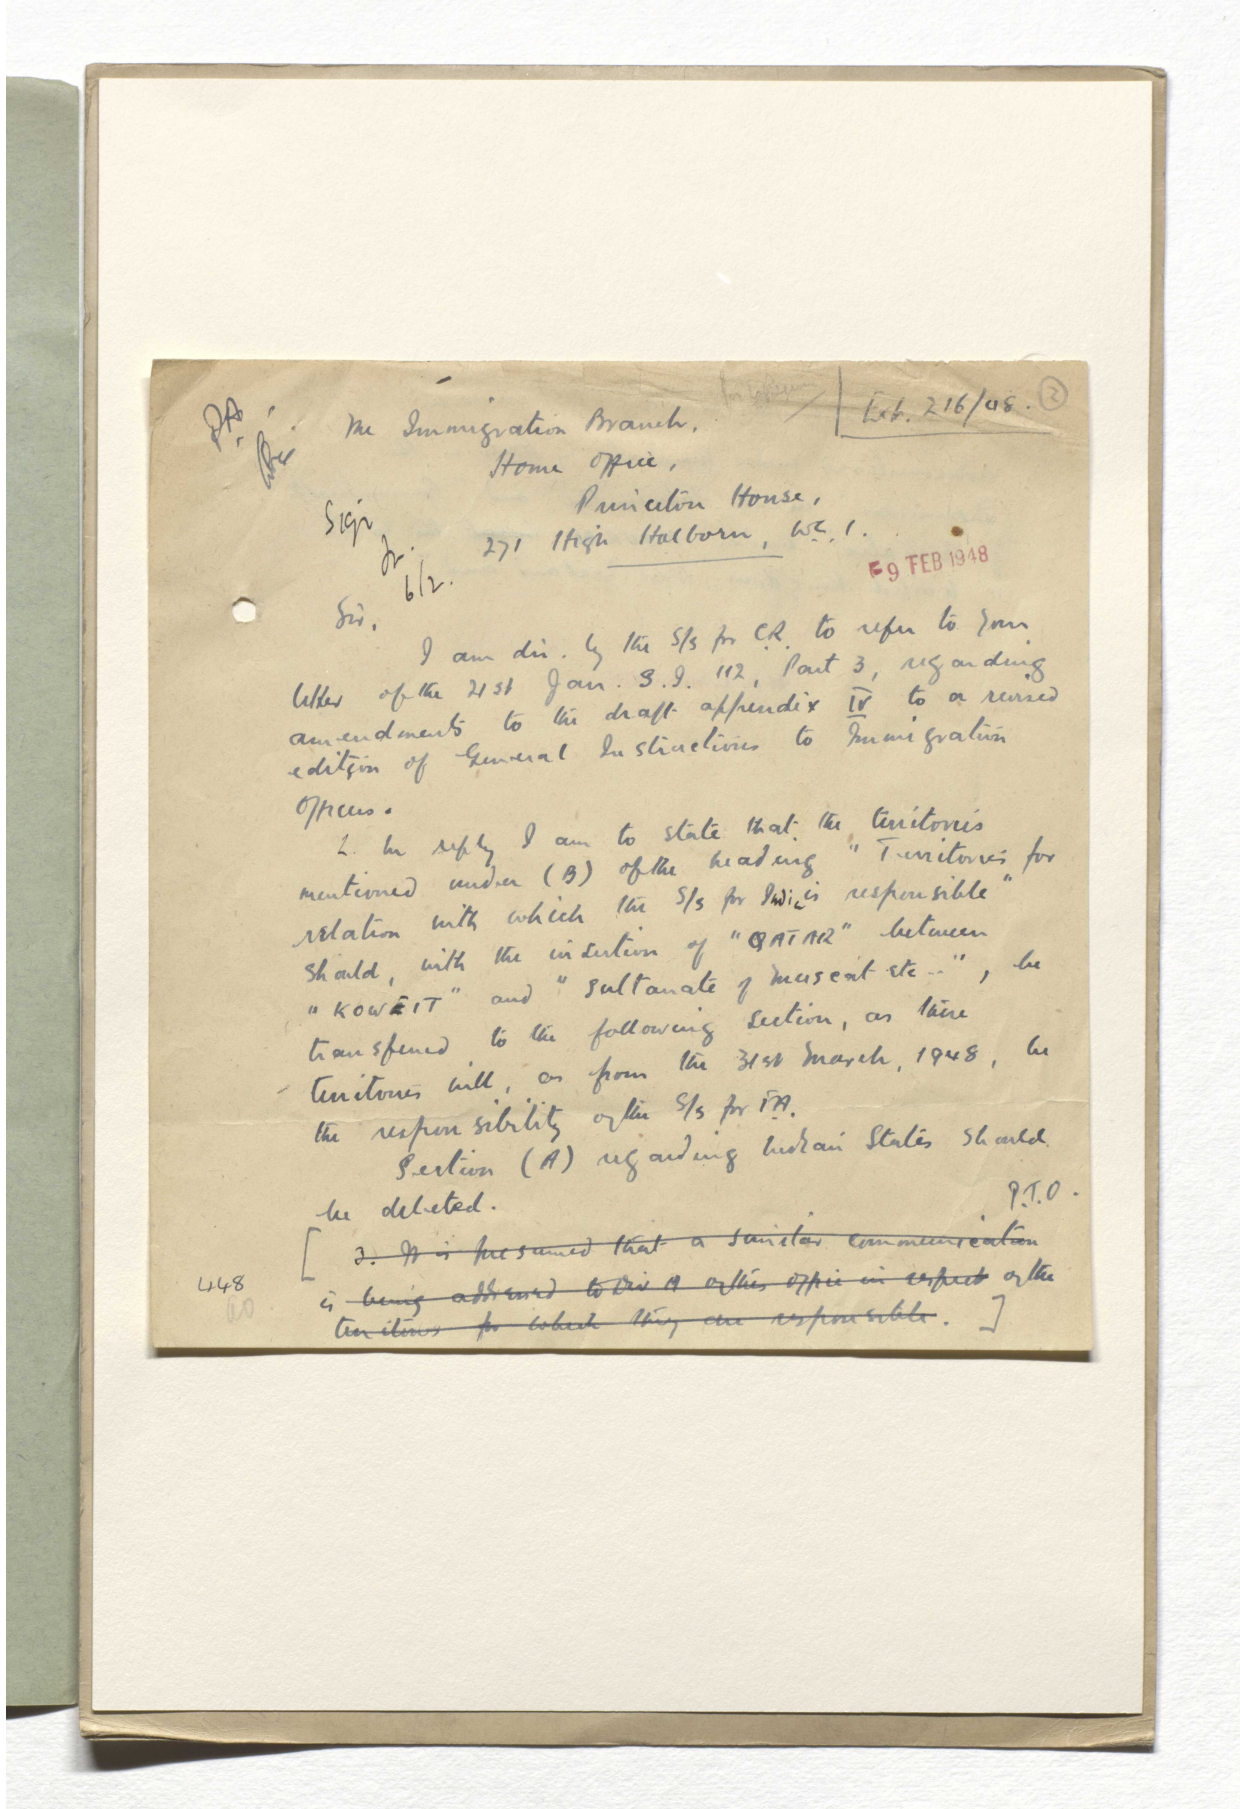 Ext. 216/48. 2
The Immigration Branch,
Home Office,
Princeton House,
271 High Holborn, W.C.1.
6/2.
9 FEB 1948
Sir,
I am dir. by the S/S for C.R. to refer to your
letter of the 21st Jan. G.I. 112, Part 3, regarding
amendments to the draft appendix IV to a revised
edition of General Instructions to Immigration
Officers.
2. In reply I am to state that the territories
mentioned under (B) of the heading "Territories for
relation with which the S/S for India is responsible"
should, with the insertion of "QATAR" between
"KOWEIT" and "Sultanate of Muscat etc..", be
transferred to the following section, as these
territories will, as from the 31st March, 1948, be
the responsibility of the S/S for F.A.
Section (A) regarding Indian States should
be deleted.
P.T.O.
[ 3. It is presumed that a similar communication
is being addressed to Div A of this office in respect of the
territories for which they are responsible. ]
448